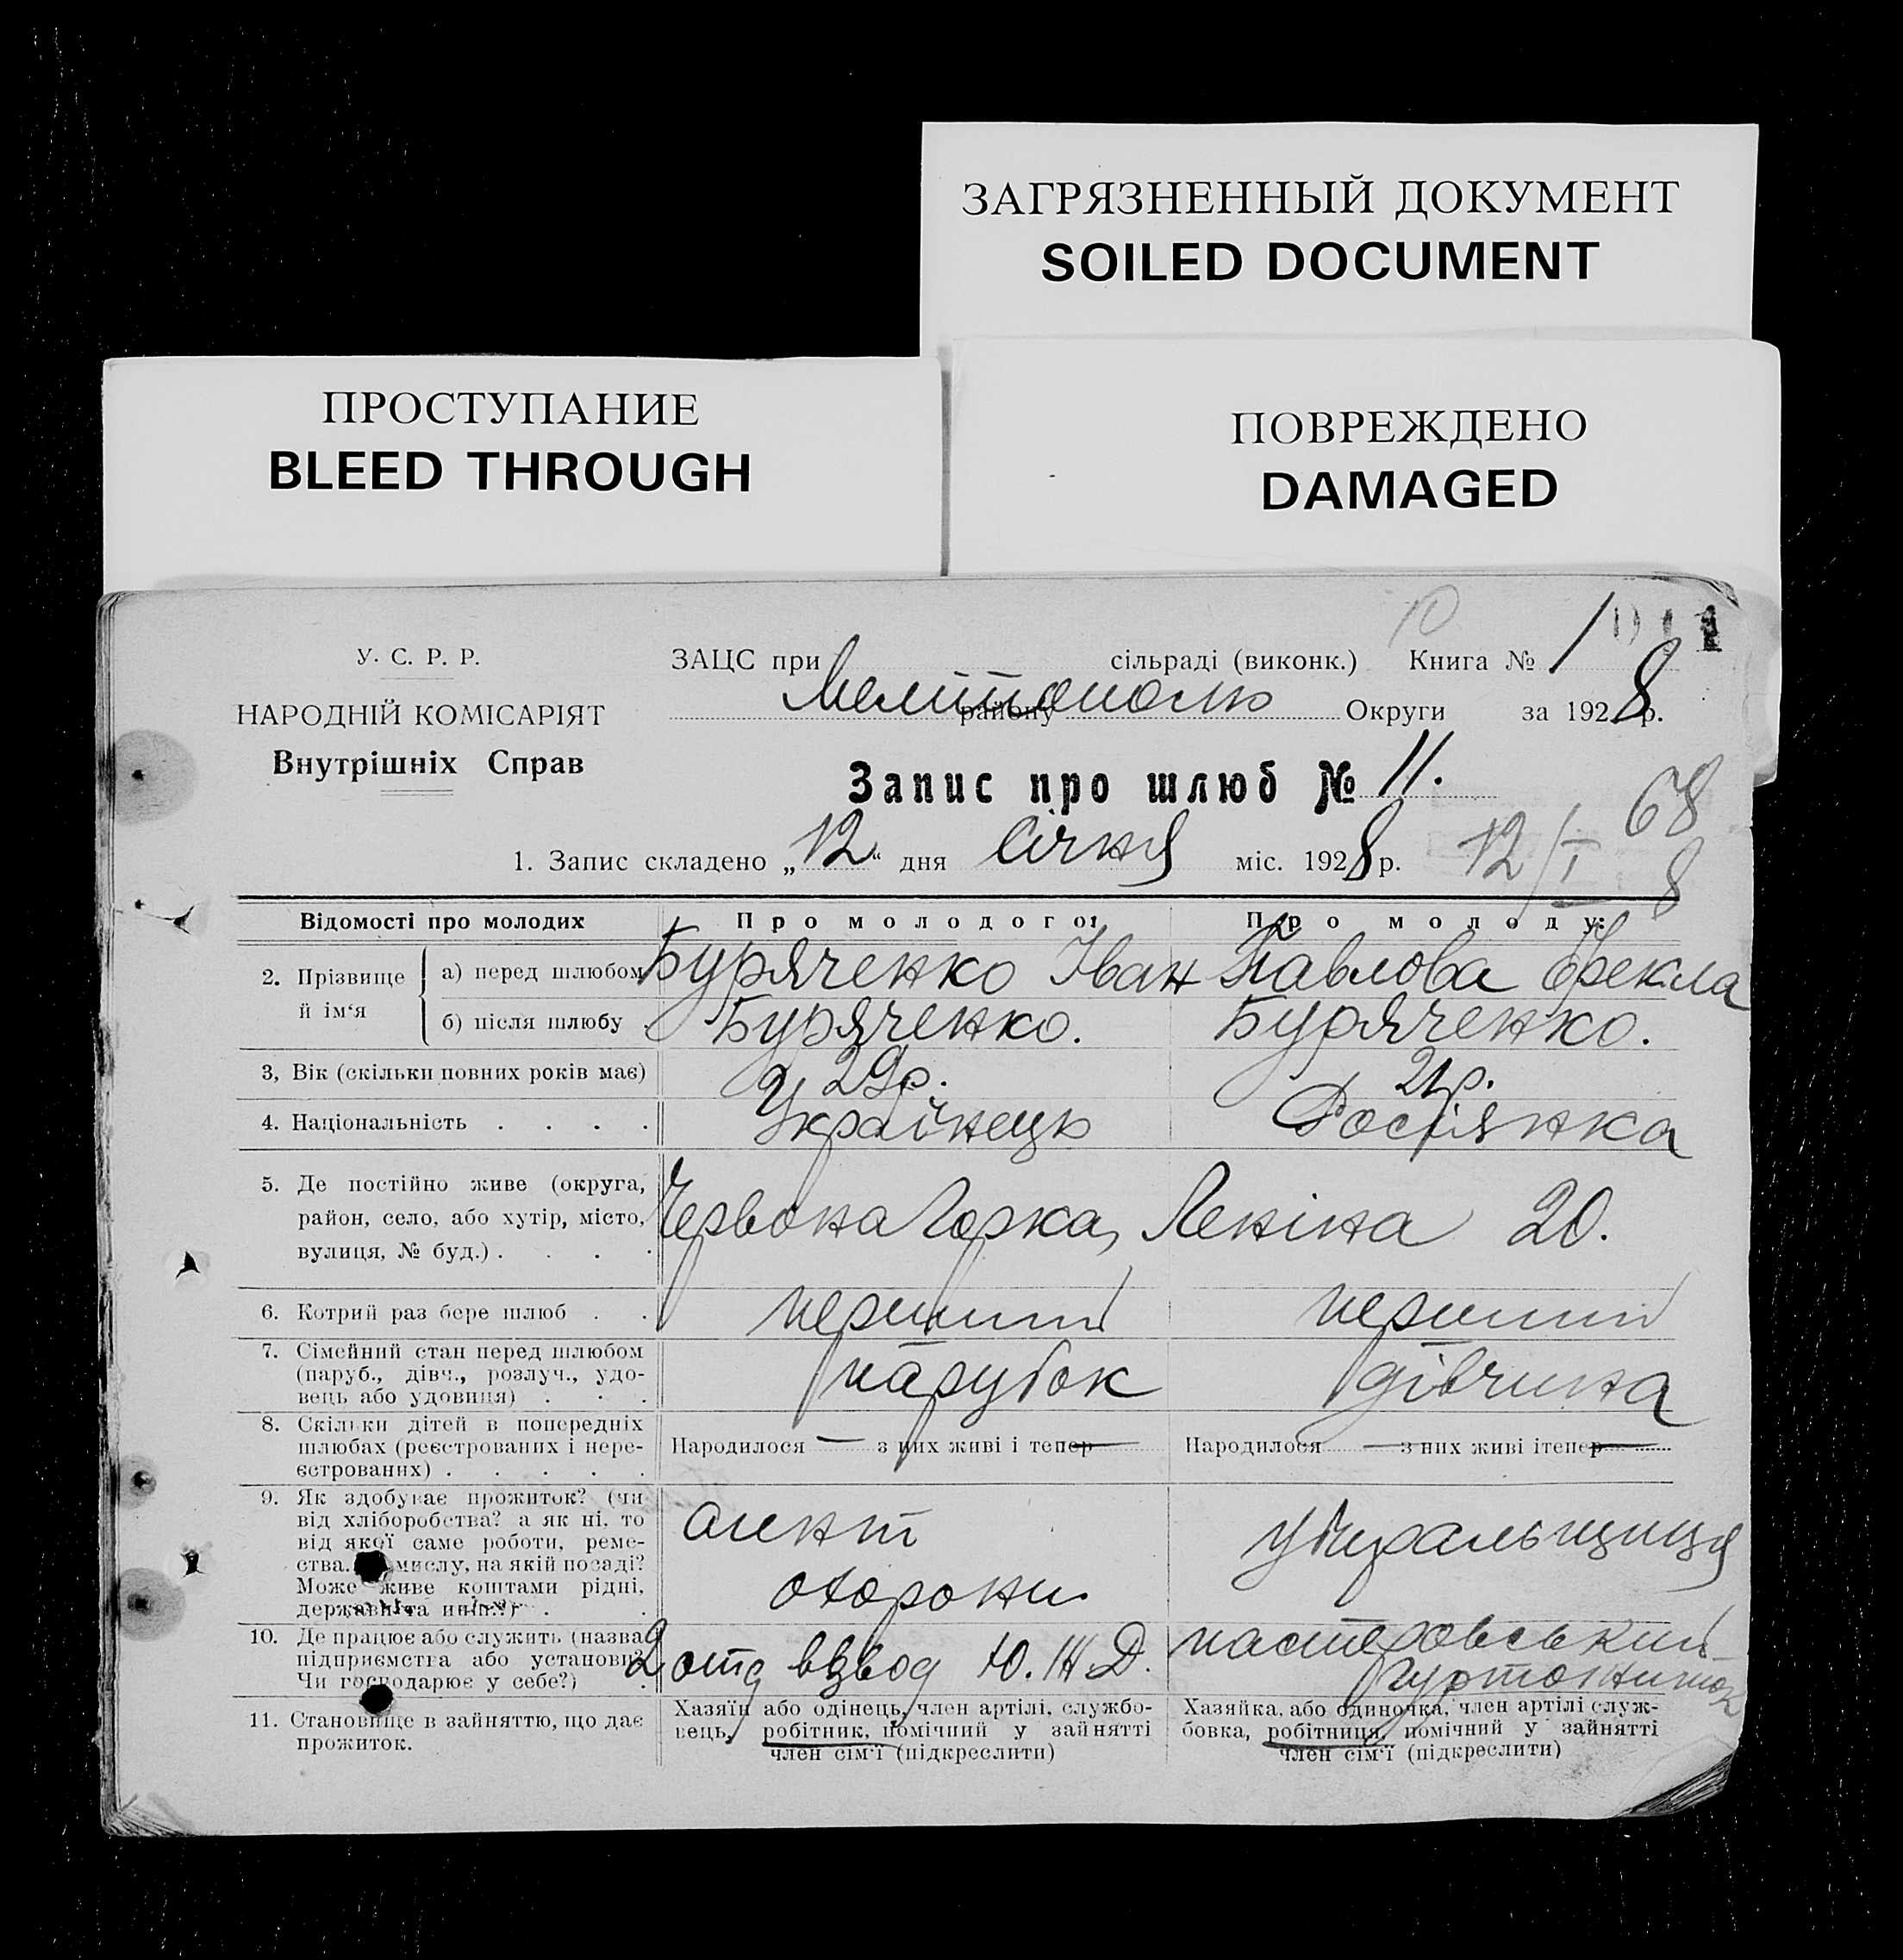 ЗАГРЯЗНЕННЫЙ ДОКУМЕНТ
SOILED DOCUMENT
ПРОСТУПАНИЕ
BLEED THROUGH
ПОВРЕЖДЕНО
DAMAGED
10
1
У. С. Р. Р.
ЗАЦС при сільраді (виконк.) Книга № 1
НАРОДНІЙ КОМІСАРІЯТ
Мелітополь району Округи за 1928 р.
Внутрішніх Справ
Запис про шлюб № 11.
68
1. Запис складено „12“ дня Січня міс. 1928 р. 12/I 8
Відомості про молодих Про молодого: Про молоду:
2. Прізвище й ім'я а) перед шлюбом Буряченко Іван Павлова Фекла
б) після шлюбу Буряченко. Буряченко.
3, Вік (скільки повних років має) 29р. 21р.
4. Національність . . . . Українець Росіянка
5. Де постійно живе (округа,
район, село, або хутір, місто, Червона Горка, Леніна 20.
вулиця, № буд.) . . . .
6. Котрий раз бере шлюб . . перший перший
7. Сімейний стан перед шлюбом
(паруб., дівч., розлуч., удо- парубок дівчина
вець або удовиця) . . .
8. Скільки дітей в попередніх
шлюбах (реєстрованих і нере- Народилося — з них живі і тепер — Народилося — з них живі і тепер —
єстрованих) . . . . .
9. Як здобуває прожиток? (чи
від хліборобства? а як ні, то агент
від якої саме роботи, реме- убиралььщиця
ства, мислу, на якій посаді?
Може живе коштами рідні, охорони
держави та инш.?) . .
10. Де працює або служить (назва пастеровський
підприємства або установи? 2 отд взвод Ю. Ж Д.
Чи господарює у себе?) . гуртожиток
11. Становище в зайняттю, що дає
прожиток.
Хазяїн або одінець, член артілі, службо-
вець, робітник, помічний у зайнятті
член сім'ї (підкреслити)
Хазяйка, або одиночка, член артілі служ-
бовка, робітниця, помічний у зайнятті
член сім'ї (підкреслити)